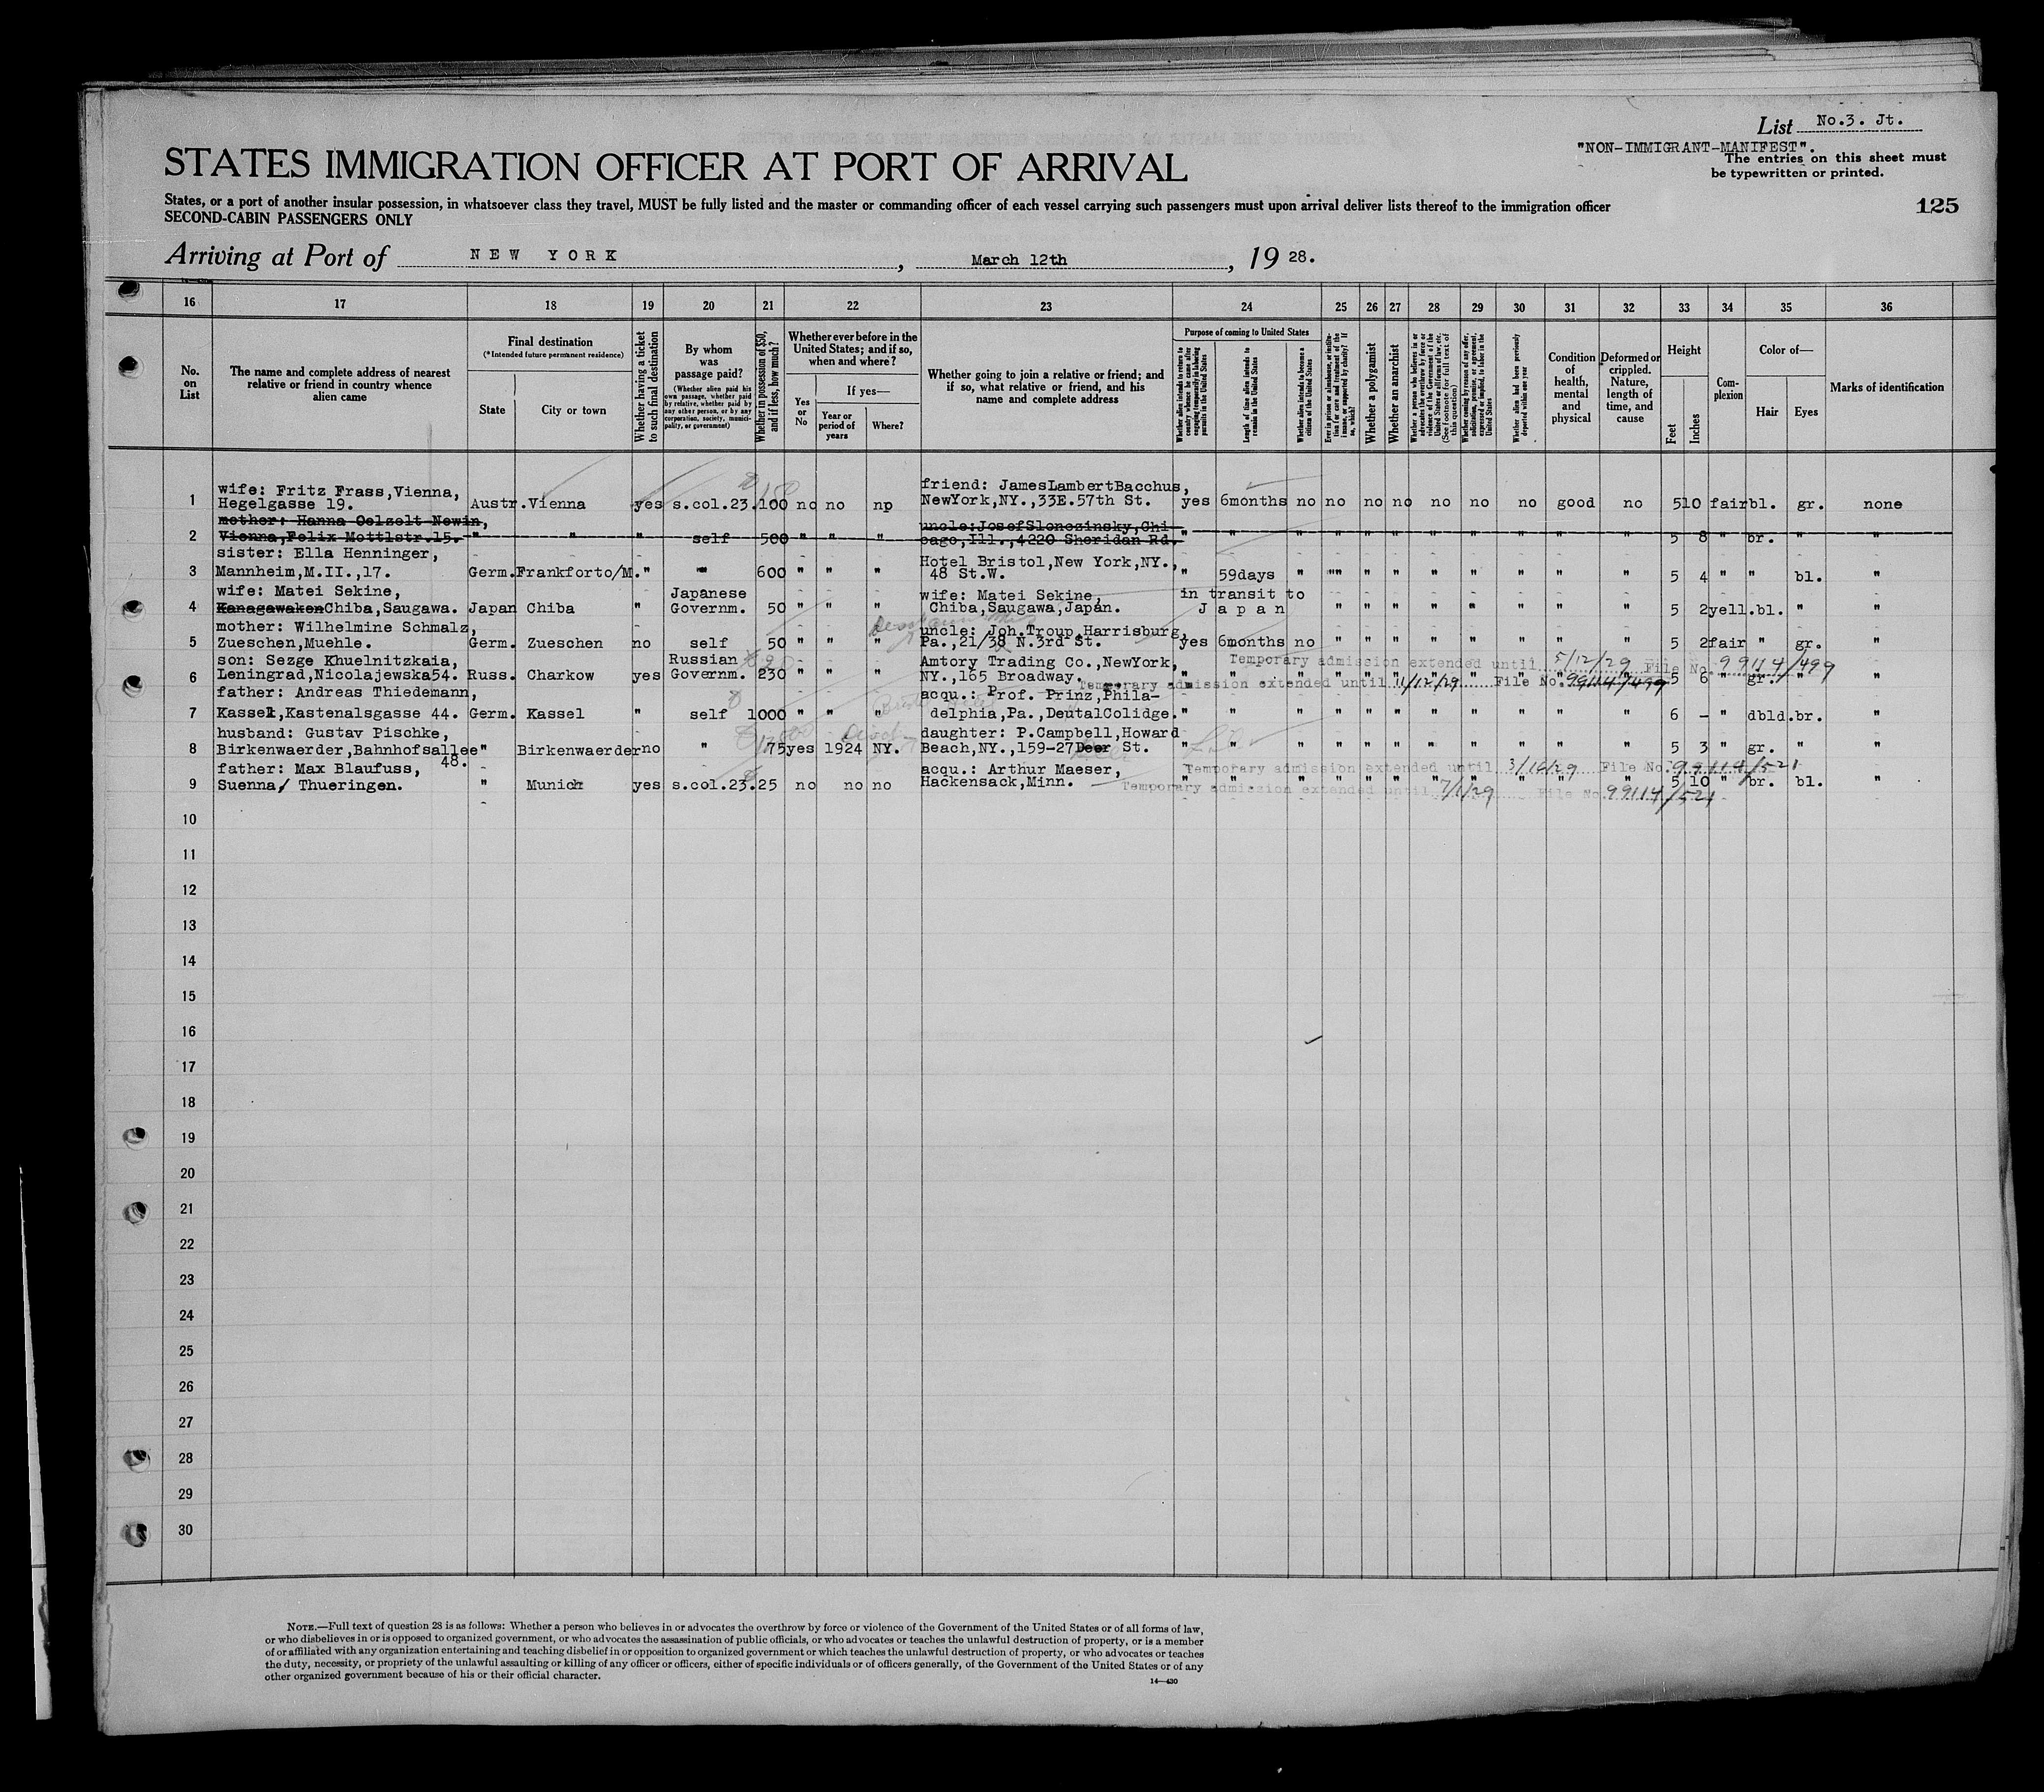 List No.3. Jt.
"NON-IMMIGRANT-MANIFEST".
The entries on this sheet must
be typewritten or printed.
STATES IMMIGRATION OFFICER AT PORT OF ARRIVAL
States, or a port of another insular possession, in whatsoever class they travel, MUST be fully listed and the master or commanding officer of each vessel carrying such passengers must upon arrival deliver lists thereof to the immigration officer
SECOND-CABIN PASSENGERS ONLY
125
Arriving at Port of NEW YORK, March 12th, 19 28.
16 17 18 19 20 21 22 23 24 25 26 27 28 29 30 31 32 33 34 35 36
No. on List
The name and complete address of nearest relative or friend in country whence alien came
Final destination
(*Intended future permanent residence)
State
City or town
Whether having a ticket to such final destination
By whom was passage paid?
(Whether alien paid his own passage, whether paid by relative, whether paid by any other person, or by any corporation, society, municipality, or government)
Whether in possession of $50, and if less, how much?
Whether ever before in the United States; and if so, when and where?
Yes or No
If yes—
Year or period of years
Where?
Whether going to join a relative or friend; and if so, what relative or friend, and his name and complete address
Purpose of coming to United States
Whether alien intends to return to country whence he came after engaging temporarily in laboring pursuits in the United States
Length of time alien intends to remain in the United States
Whether alien intends to become a citizen of the United States
Ever in prison or almshouse, or institution for care and treatment of the insane, or supported by charity? If so, which?
Whether a polygamist
Whether an anarchist
Whether a person who believes in or advocates the overthrow by force or violence of the Government of the United States or all forms of law, etc. (See footnote for full text of this question)
Whether coming by reason of any offer, solicitation, promise, or agreement, expressed or implied, to labor in the United States
Whether alien had been previously deported within one year
Condition of health, mental and physical
Deformed or crippled. Nature, length of time, and cause
Height
Feet
Inches
Complexion
Color of—
Hair
Eyes
Marks of identification
wife: Fritz Frass,Vienna, friend: JamesLambertBacchus,
1 Hegelgasse 19. Austr.Vienna yes s.col.23.100 no no np NewYork,NY.,33E.57th St. yes 6months no no no no no no no good no 510 fair bl. gr. none
mother: Hanna Oelzelt Newin, uncle:JosefSlonczinsky,Chi-
2 Vienna,Felix Mottlstr.15. " " " self 500 " " " cago,Ill.,4220 Sheridan Rd. " " " " " " " " " " " 5 8 " br. " "
sister: Ella Henninger, Hotel Bristol,New York,NY.,
3 Mannheim,M.II.,17. Germ.Frankforto/M. " " 600 " " " 48 St.W. " 59days " "" " " " " " " " 5 4 " " bl. "
wife: Matei Sekine, Japanese wife: Matei Sekine, in transit to
4 KanagawakenChiba,Saugawa. Japan Chiba " Governm. 50 " " " Chiba,Saugawa,Japan. Japan " " " " " " " " 5 2 yell.bl. " "
mother: Wilhelmine Schmalz, uncle: Joh.Troup,Harrisburg,
5 Zueschen,Muehle. Germ. Zueschen no self 50 " " " Pa.,21/38 N.3rd St. yes 6months no " " " " " " " " 5 2 fair " gr. "
son: Sezge Khuelnitzkaia, Russian Amtory Trading Co.,NewYork, Temporary admission extended until 5/12/29 File No. 99114/499
6 Leningrad,Nicolajewska54. Russ. Charkow yes Governm. 230 " " " NY.,165 Broadway. " " " " " " " " " " " 5 6 " gr. " "
Temporary admission extended until 11/12/29 File No. 99114/499
father: Andreas Thiedemann, acqu.: Prof. Prinz,Phila-
7 Kassel,Kastenalsgasse 44. Germ. Kassel " self 1000 " " " delphia,Pa.,DeutalColidge. " " " " " " " " " " " 6 – " dbld.br. "
husband: Gustav Pischke, daughter: P.Campbell,Howard
8 Birkenwaerder,Bahnhofsallee " Birkenwaerder no " 175 yes 1924 NY. Beach,NY.,159-27Deer St. " " " " " " " " " " " 5 3 " gr. " "
48.
father: Max Blaufuss, acqu.: Arthur Maeser, Temporary admission extended until 3/16/29 File No. 99114/521
9 Suenna/ Thueringen. " Munich yes s.col.23.25 no no no Hackensack,Minn. " " " " " " " " " " " 5 10 " br. bl. "
Temporary admission extended until 7/1/29 File No. 99114/521
10
11
12
13
14
15
16
17
18
19
20
21
22
23
24
25
26
27
28
29
30
NOTE.—Full text of question 28 is as follows: Whether a person who believes in or advocates the overthrow by force or violence of the Government of the United States or of all forms of law,
or who disbelieves in or is opposed to organized government, or who advocates the assassination of public officials, or who advocates or teaches the unlawful destruction of property, or is a member
of or affiliated with any organization entertaining and teaching disbelief in or opposition to organized government or which teaches the unlawful destruction of property, or who advocates or teaches
the duty, necessity, or propriety of the unlawful assaulting or killing of any officer or officers, either of specific individuals or of officers generally, of the Government of the United States or of any
other organized government because of his or their official character.
14—430